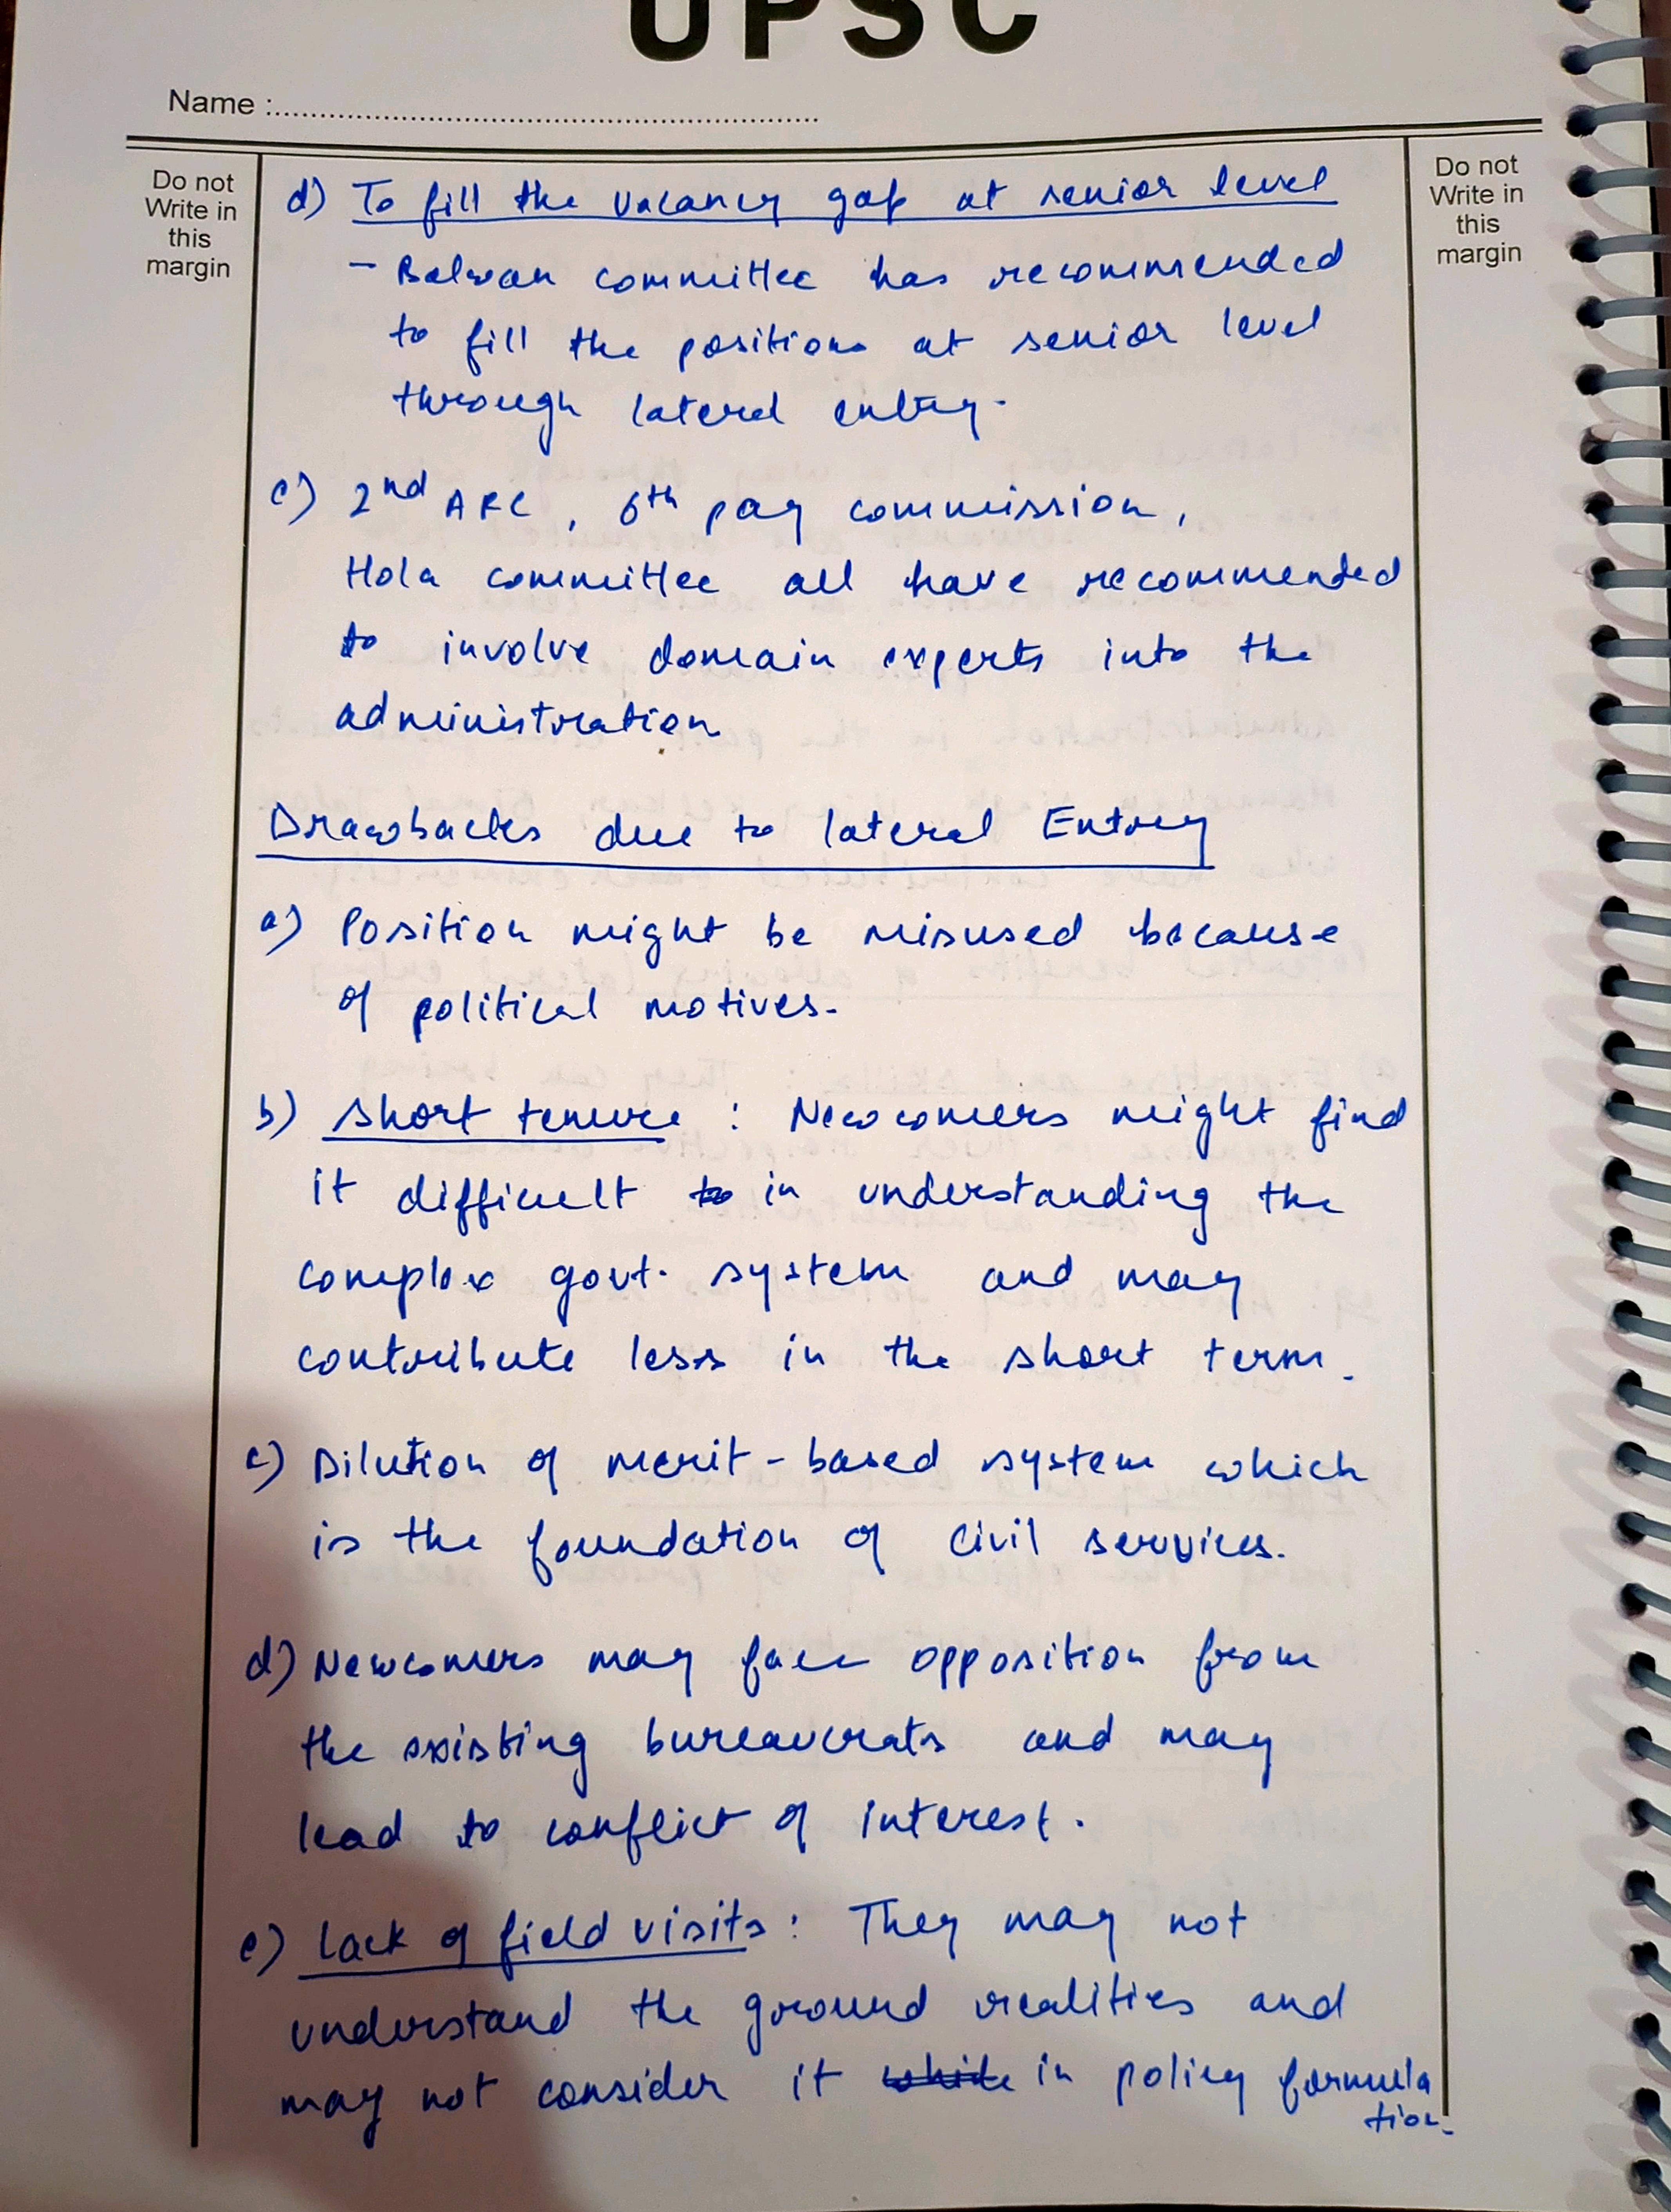 UPSC
Name :
Do not
Write in
this
margin
Do not
Write in
this
margin
d) To fill the vacancy gap at senior level
- Balwan committee has recommended
to fill the positions at senior level
through lateral entry.
e) 2nd ARC, 6th pay commission,
Hola committee all have recommended
to involve domain experts into the
administration
Drawbacks due to lateral Entry
a) Position might be misused because
of political motives.
b) Short tenure : Newcomers might find
it difficult to in understanding the
complex govt. system and may
contribute less in the short term.
c) Dilution of merit-based system which
is the foundation of civil services.
d) Newcomers may face opposition from
the existing bureaucrats and may
lead to conflict of interest.
e) Lack of field visits : They may not
understand the ground realities and
may not consider it while in policy formula
tion.